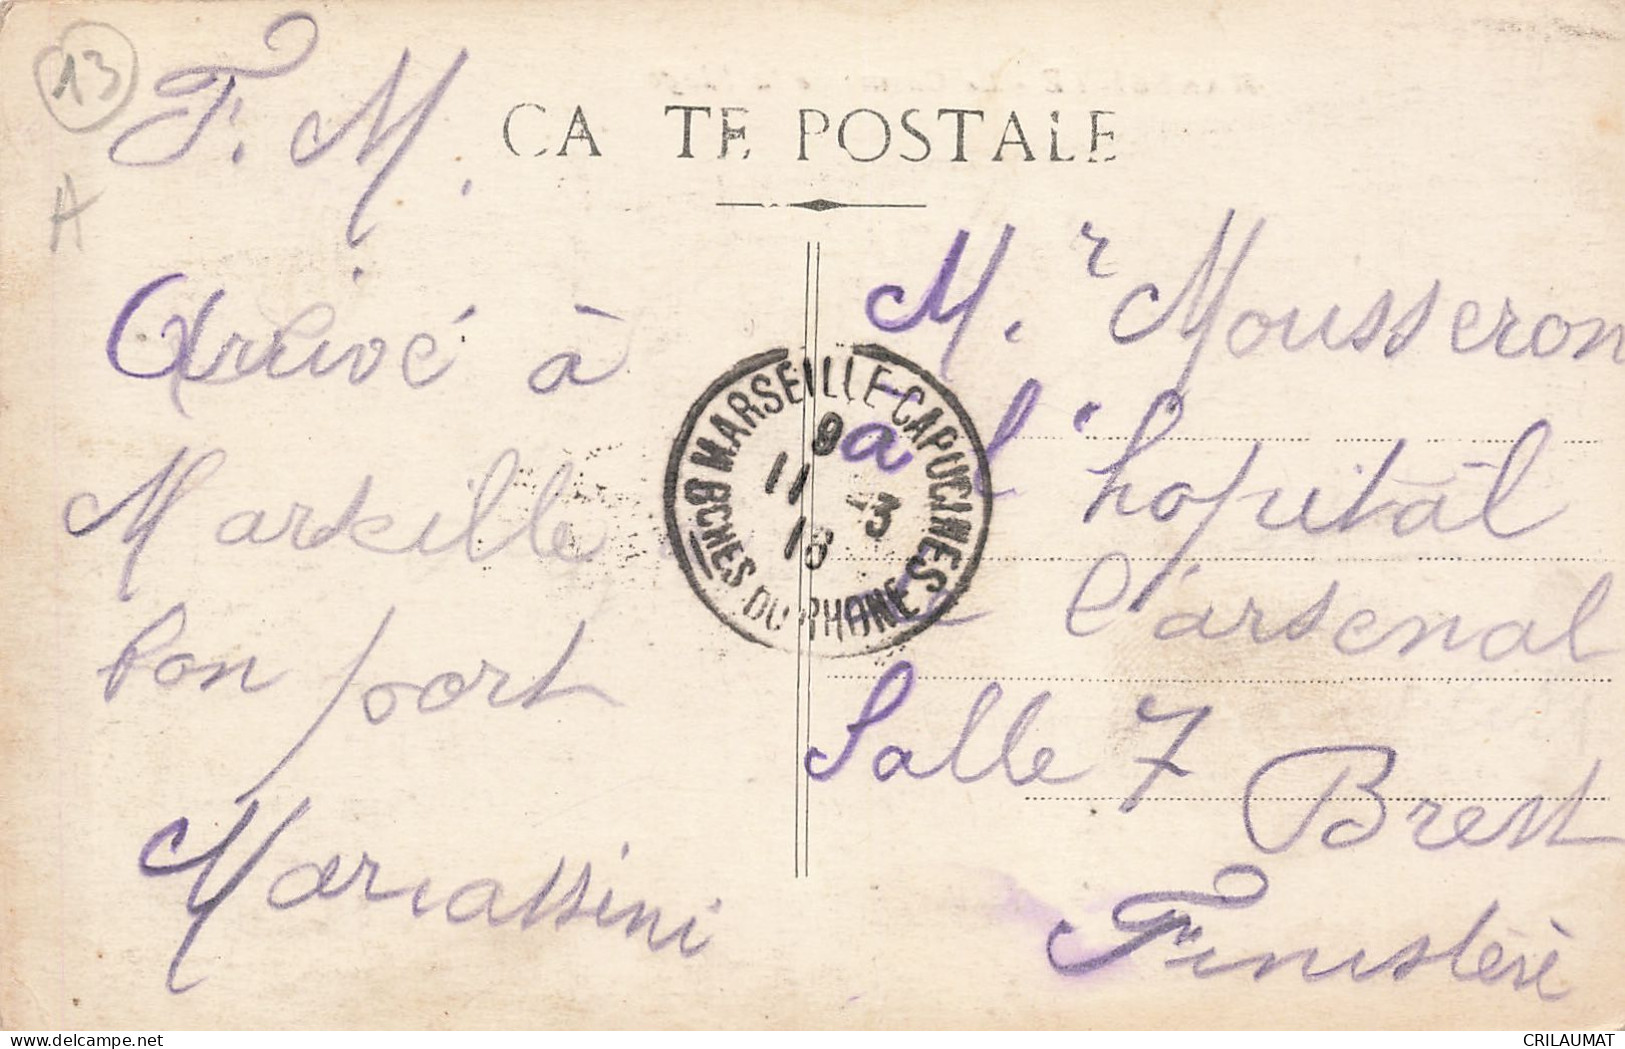 13
A
F. M.
CA TE POSTALE
Arrivé à
Marseille
bon port
Mariassini
MARSEILLE-CAPUCINES
9
11 -3
BCHES DU RHONE
Mr. Mousseron
à l'hopital
de l'arsenal
Salle 7
Brest
Finistère
delcampe.net
CRILAUMAT